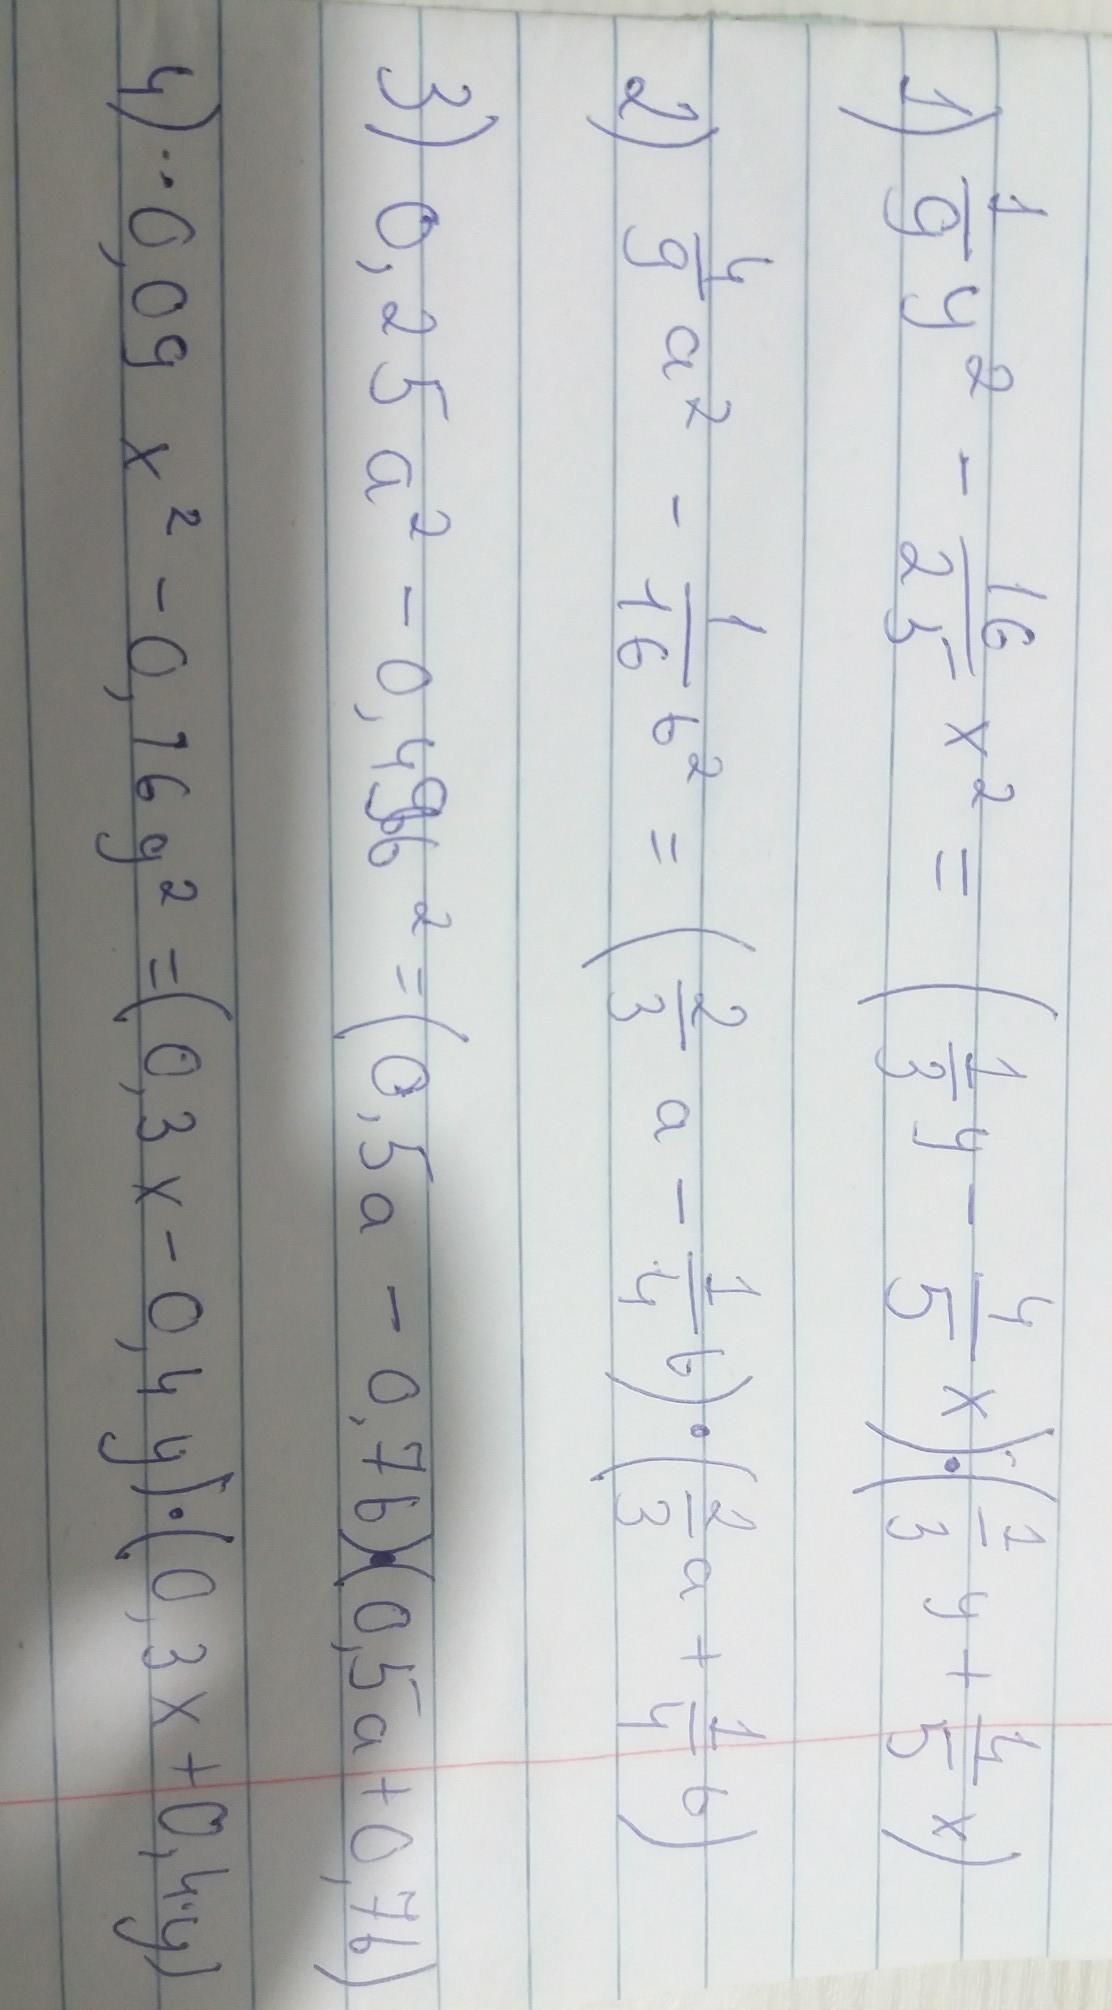 1) 1/9 y² - 16/25 x² = (1/3 y - 4/5 x)·(1/3 y + 4/5 x)
2) 4/9 a² - 1/16 b² = (2/3 a - 1/4 b)·(2/3 a + 1/4 b)
3) 0,25 a² - 0,49b² = (0,5a - 0,7b)·(0,5a + 0,7b)
4) 0,09 x² - 0,16 y² = (0,3 x - 0,4 y)·(0,3 x + 0,4y)